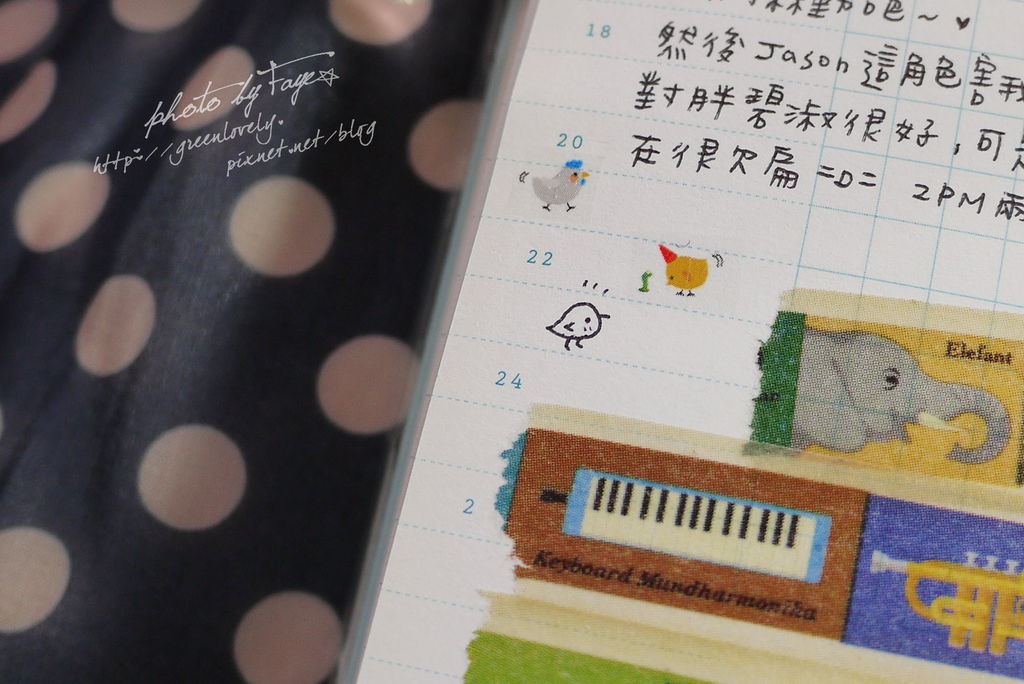 photo by Faye☆
http://greenlovely.
pixnet.net/blog
18
然後 Jason 這角色害我
對胖碧淑很好,可是
20
在很欠扁 =D= 2PM兩
22
24
2
Elefant
Keyboard Mundharmonika